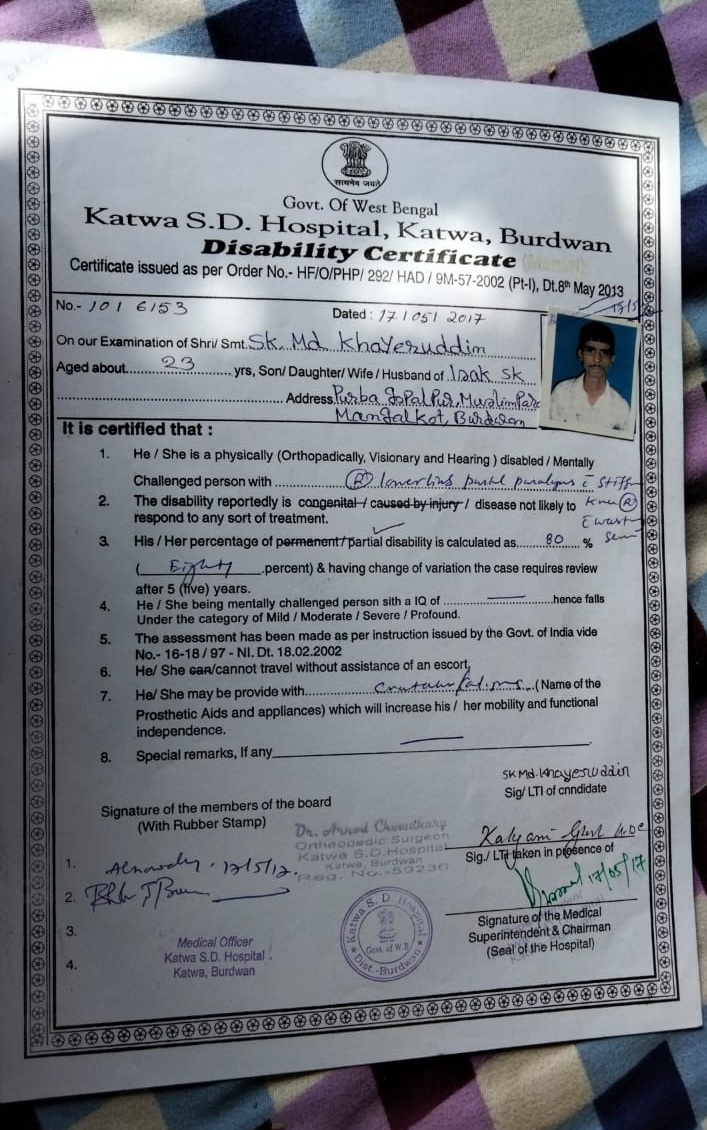 सत्यमेव जयते
Govt. Of West Bengal
Katwa S.D. Hospital, Katwa, Burdwan
Disability Certificate
Certificate issued as per Order No.- HF/O/PHP/ 292/ HAD / 9M-57-2002 (Pt-I), Dt.8th May 2013
No.- 101 6153 Dated : 17/05/2017
On our Examination of Shri/ Smt. Sk. Md Khayeruddin
Aged about 23 yrs, Son/ Daughter/ Wife / Husband of Isak Sk
Address Purba Gopalpur, Muslim Para
Mangalkot, Burdwan
It is certified that :
1. He / She is a physically (Orthopadically, Visionary and Hearing ) disabled / Mentally
Challenged person with (R) lower limb partial paralysis c̄ stiff
2. The disability reportedly is congenital / caused by injury / disease not likely to knee (R)
respond to any sort of treatment.
3. His / Her percentage of permanent/partial disability is calculated as 80 %
( Eighty percent) & having change of variation the case requires review
after 5 (five) years.
4. He / She being mentally challenged person sith a IQ of hence falls
Under the category of Mild / Moderate / Severe / Profound.
5. The assessment has been made as per instruction issued by the Govt. of India vide
No.- 16-18 / 97 - NI. Dt. 18.02.2002
6. He/ She can/cannot travel without assistance of an escort,
7. He/ She may be provide with (Name of the
Prosthetic Aids and appliances) which will increase his / her mobility and functional
independence.
8. Special remarks, If any
SK Md. Khayeruddin
Sig/ LTI of cnndidate
Signature of the members of the board
(With Rubber Stamp)
Dr. Arvind Chowdhury
Orthopedic Surgeon
Katwa S.D. Hospital
Katwa, Burdwan
Reg. No.-59236
Kalyani Ghosh
Sig./ LTI taken in presence of
1. 17/5/17
2.
17/05/17
Signature of the Medical
Superintendent & Chairman
(Seal of the Hospital)
3.
4.
Medical Officer
Katwa S.D. Hospital
Katwa, Burdwan
Katwa S. D. Hospital
Govt. of W.B
Dist.-Burdwan